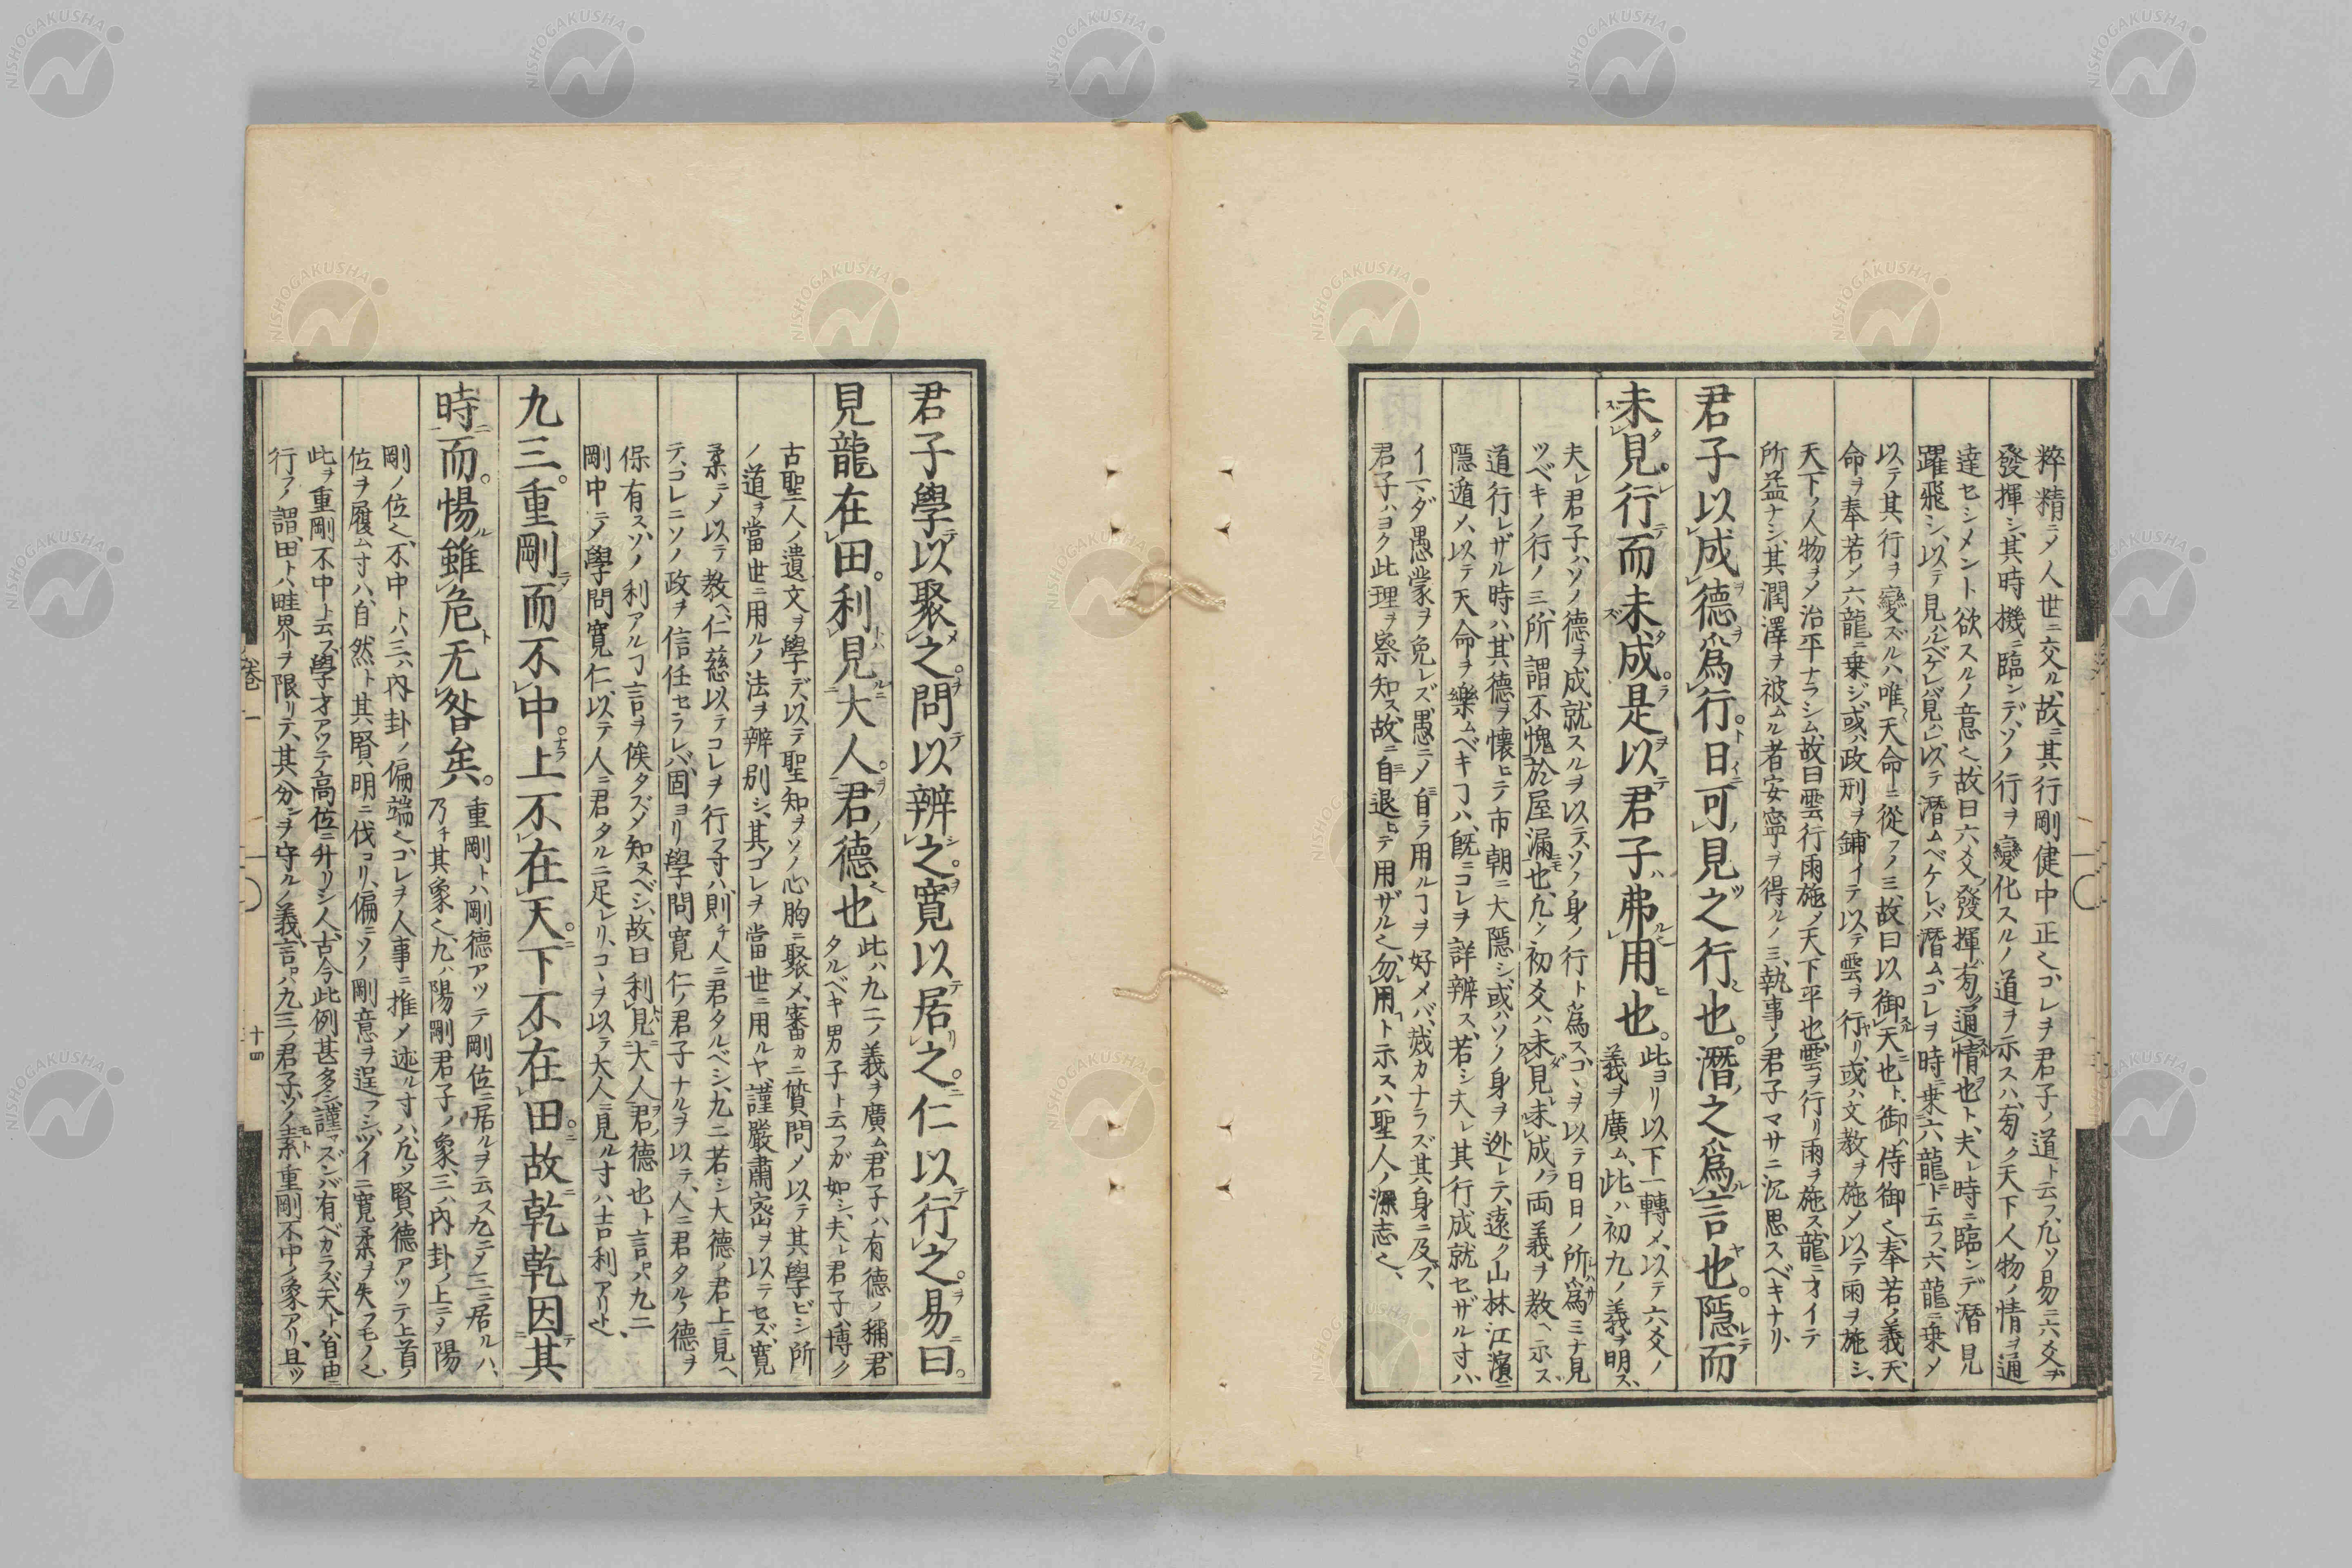 粹精ニメ人世ニ交ル、故ニ其行剛健中正也、コレヲ君子ノ道ト云フ、凡ソ易ニ六爻ヲ
發揮シ、其時機ニ臨ンデ、ソノ行ヲ變化スルノ道ヲ示スハ、旁ク天下人物ノ情ヲ通
達セシメント欲スルノ意也、故曰六爻發揮、旁通情也ト、夫レ時ニ臨ンデ潛見
躍飛シ、以テ見ルベケレバ見ハレ、以テ潛ムベケレバ潛ム、コレヲ時乗六龍ト云フ、六龍ニ乗メ
以テ其行ヲ變ズルハ、唯天命ニ從フノミ、故曰以御天也ト、御ハ侍御也、奉若ノ義、天
命ヲ奉若メ六龍ニ乗ジ、或ハ政刑ヲ鋪イテ以テ雲ヲ行リ、或ハ文教ヲ施メ以テ雨ヲ施シ、
天下ノ人物ヲメ治平ナラシム、故曰雲行雨施メ天下平也、雲ヲ行リ雨ヲ施ス、龍ニオイテ
所益ナシ、其潤澤ヲ被ムル者安寧ヲ得ルノミ、執事ノ君子マサニ沉思スベキナリ、
君子以成德爲行。日可見之行也。潛之爲言也。隱而
未見。行而未成。是以君子弗用也。
此ヨリ以下一轉メ、以テ六爻ノ
義ヲ廣ム、此ハ初九ノ義ヲ明ス、
夫レ君子ハソノ德ヲ成就スルヲ以テ、ソノ身ノ行ト爲ス、コヽヲ以テ日日ノ所爲ミナ見
ツベキノ行ノミ、所謂不愧於屋漏也、凡ソ初爻ハ未見未成ノ両義ヲ教ヘ示ス、
道行レザル時ハ、其德ヲ懷ヒテ市朝ニ大隱シ、或ハソノ身ヲ迯レテ、遠ク山林江濱ニ
隱遁メ、以テ天命ヲ樂ムベキヿハ、既ニコレヲ詳辨ス、若シ夫レ其行成就セザル寸ハ、
イマダ愚蒙ヲ免レズ、愚ニメ自ラ用ルヿヲ好メバ、烖カナラズ其身ニ及ブ、
君子ハヨク此理ヲ察知ス、故ニ自退ヒテ用ザル也、勿用ト示スハ聖人ノ深志也、
君子學以聚之。問以辨之。寛以居之。仁以行之。易曰。
見龍在田。利見大人。君德也
此ハ九二ノ義ヲ廣ム、君子ハ有德ノ稱、君
タルベキ男子ト云フガ如シ、夫レ君子ハ博ク
古聖人ノ遺文ヲ學デ、以テ聖知ヲソノ心胸ニ聚メ、審カニ質問メ以テ其學ビシ所
ノ道ヲ當世ニ用ルノ法ヲ辨別シ、其コレヲ當世ニ用ルヤ、謹嚴肅密ヲ以テセズ、寛
柔ニメ以テ教ヘ、仁慈以テコレヲ行フ寸ハ、則チ人ニ君タルベシ、九二若シ大德ノ君上ニ見ヘ
テ、コレニソノ政ヲ信任セラレバ、固ヨリ學問寛仁ノ君子ナルヲ以テ、人ニ君タルノ德ヲ
保有ス、ソノ利アルヿ言ヲ俟タズメ知ヌベシ、故曰利見大人君德也ト、言ハ九二
剛中ニメ學問寛仁、以テ人ニ君タルニ足レリ、コヽヲ以テ大人ニ見ル寸ハ吉利アリト也、
九三。重剛而不中。上不在天。下不在田故乾乾因其
時而。惕雖危无咎矣。
重剛トハ剛德アツテ剛位ニ居ルヲ云ス、九ニメ三ニ居ルハ、
乃チ其象也、九ハ陽剛君子ノ象、三ハ內卦ノ上ニメ陽
剛ノ位也、不中トハ三ハ內卦ノ偏端也、コレヲ人事ニ推メ迹ル寸ハ、凡ソ賢德アツテ上首ノ
位ヲ履ム寸ハ、自然ト其賢明ニ伐コリ、偏ニソノ剛意ヲ逞フシ、ツイニ寛柔ヲ失フモノ也、
此ヲ重剛不中ト云フ、學才アツテ高位ニ升リシ人、古今此例甚多シ、謹マズンバ有ベカラズ、天トハ自由ニ
行フノ謂、田トハ畦界ヲ限リテ、其分ヲ守ルノ義、言ハ九三ノ君子ソノ素重剛不中ノ象アリ、且ツ
卷一
十四
NISHOGAKUSHA